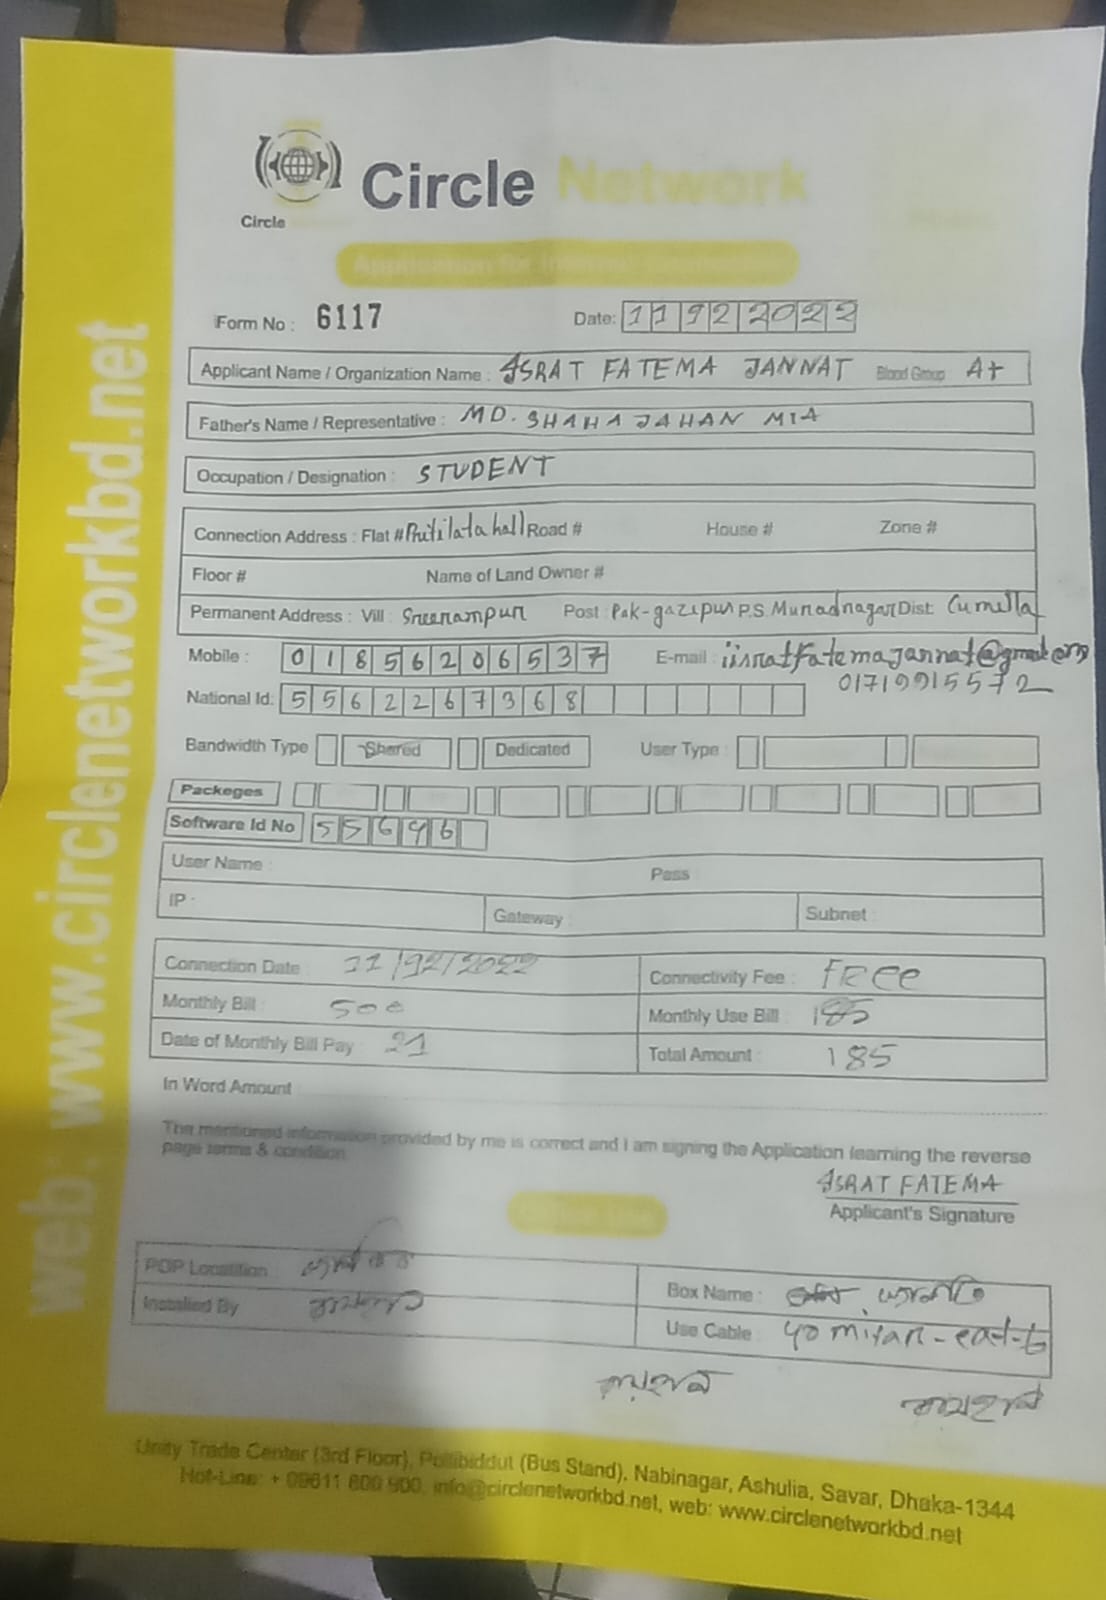 Circle Network
Circle
Application for Internet Connection
Form No : 6117 Date: 11922022
Applicant Name / Organization Name : ISRAT FATEMA JANNAT Blood Group A+
Father's Name / Representative : MD. SHAHAJAHAN MIA
Occupation / Designation : STUDENT
Connection Address : Flat # Pritilata hall Road # House # Zone #
Floor # Name of Land Owner #
Permanent Address : Vill : Sreerampur Post : Pak-gazipur P.S. Muradnagar Dist: Cumilla
Mobile : 01856206537 E-mail : iisratfatemajannat@gmail.com
01719915572
National Id: 5562267368
Bandwidth Type Shared Dedicated User Type :
Packeges
Software Id No 55696
User Name : Pass :
IP : Gateway : Subnet :
Connection Date : 11/92/2022 Connectivity Fee : FREE
Monthly Bill : 500 Monthly Use Bill : 185
Date of Monthly Bill Pay : 21 Total Amount : 185
In Word Amount
The mentioned information provided by me is correct and I am signing the Application learning the reverse
page terms & condition.
ISRAT FATEMA
Applicant's Signature
POP Locatition :
Installed By Box Name :
Use Cable :
Unity Trade Center (3rd Floor), Pollibiddut (Bus Stand), Nabinagar, Ashulia, Savar, Dhaka-1344
Hot-Line: + 09611 800 900, info@circlenetworkbd.net, web: www.circlenetworkbd.net
web: www.circlenetworkbd.net